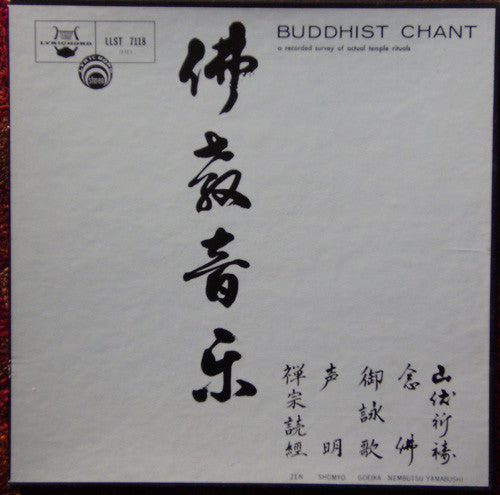 LYRICHORD
LLST 7118
STEREO
BUDDHIST CHANT
a recorded survey of actual temple rituals
佛教音乐
山伏祈祷
念佛
御詠歌
声明
禅宗読經
ZEN SHOMYO GOEIKA NEMBUTSU YAMABUSHI